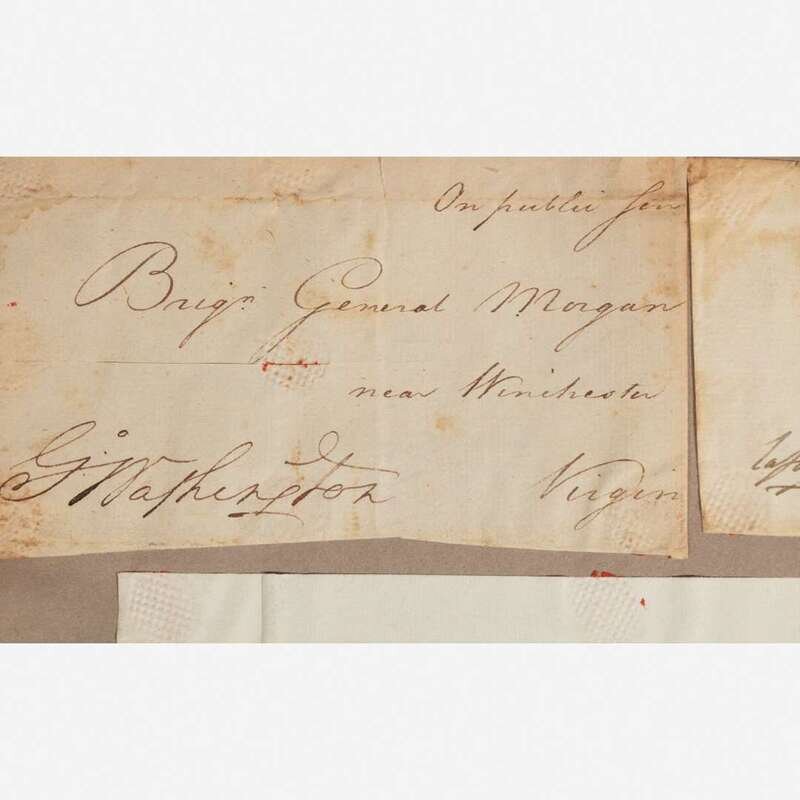 On public Ser
Brigr. General Morgan
near Winchester
Go: Washington Virgin